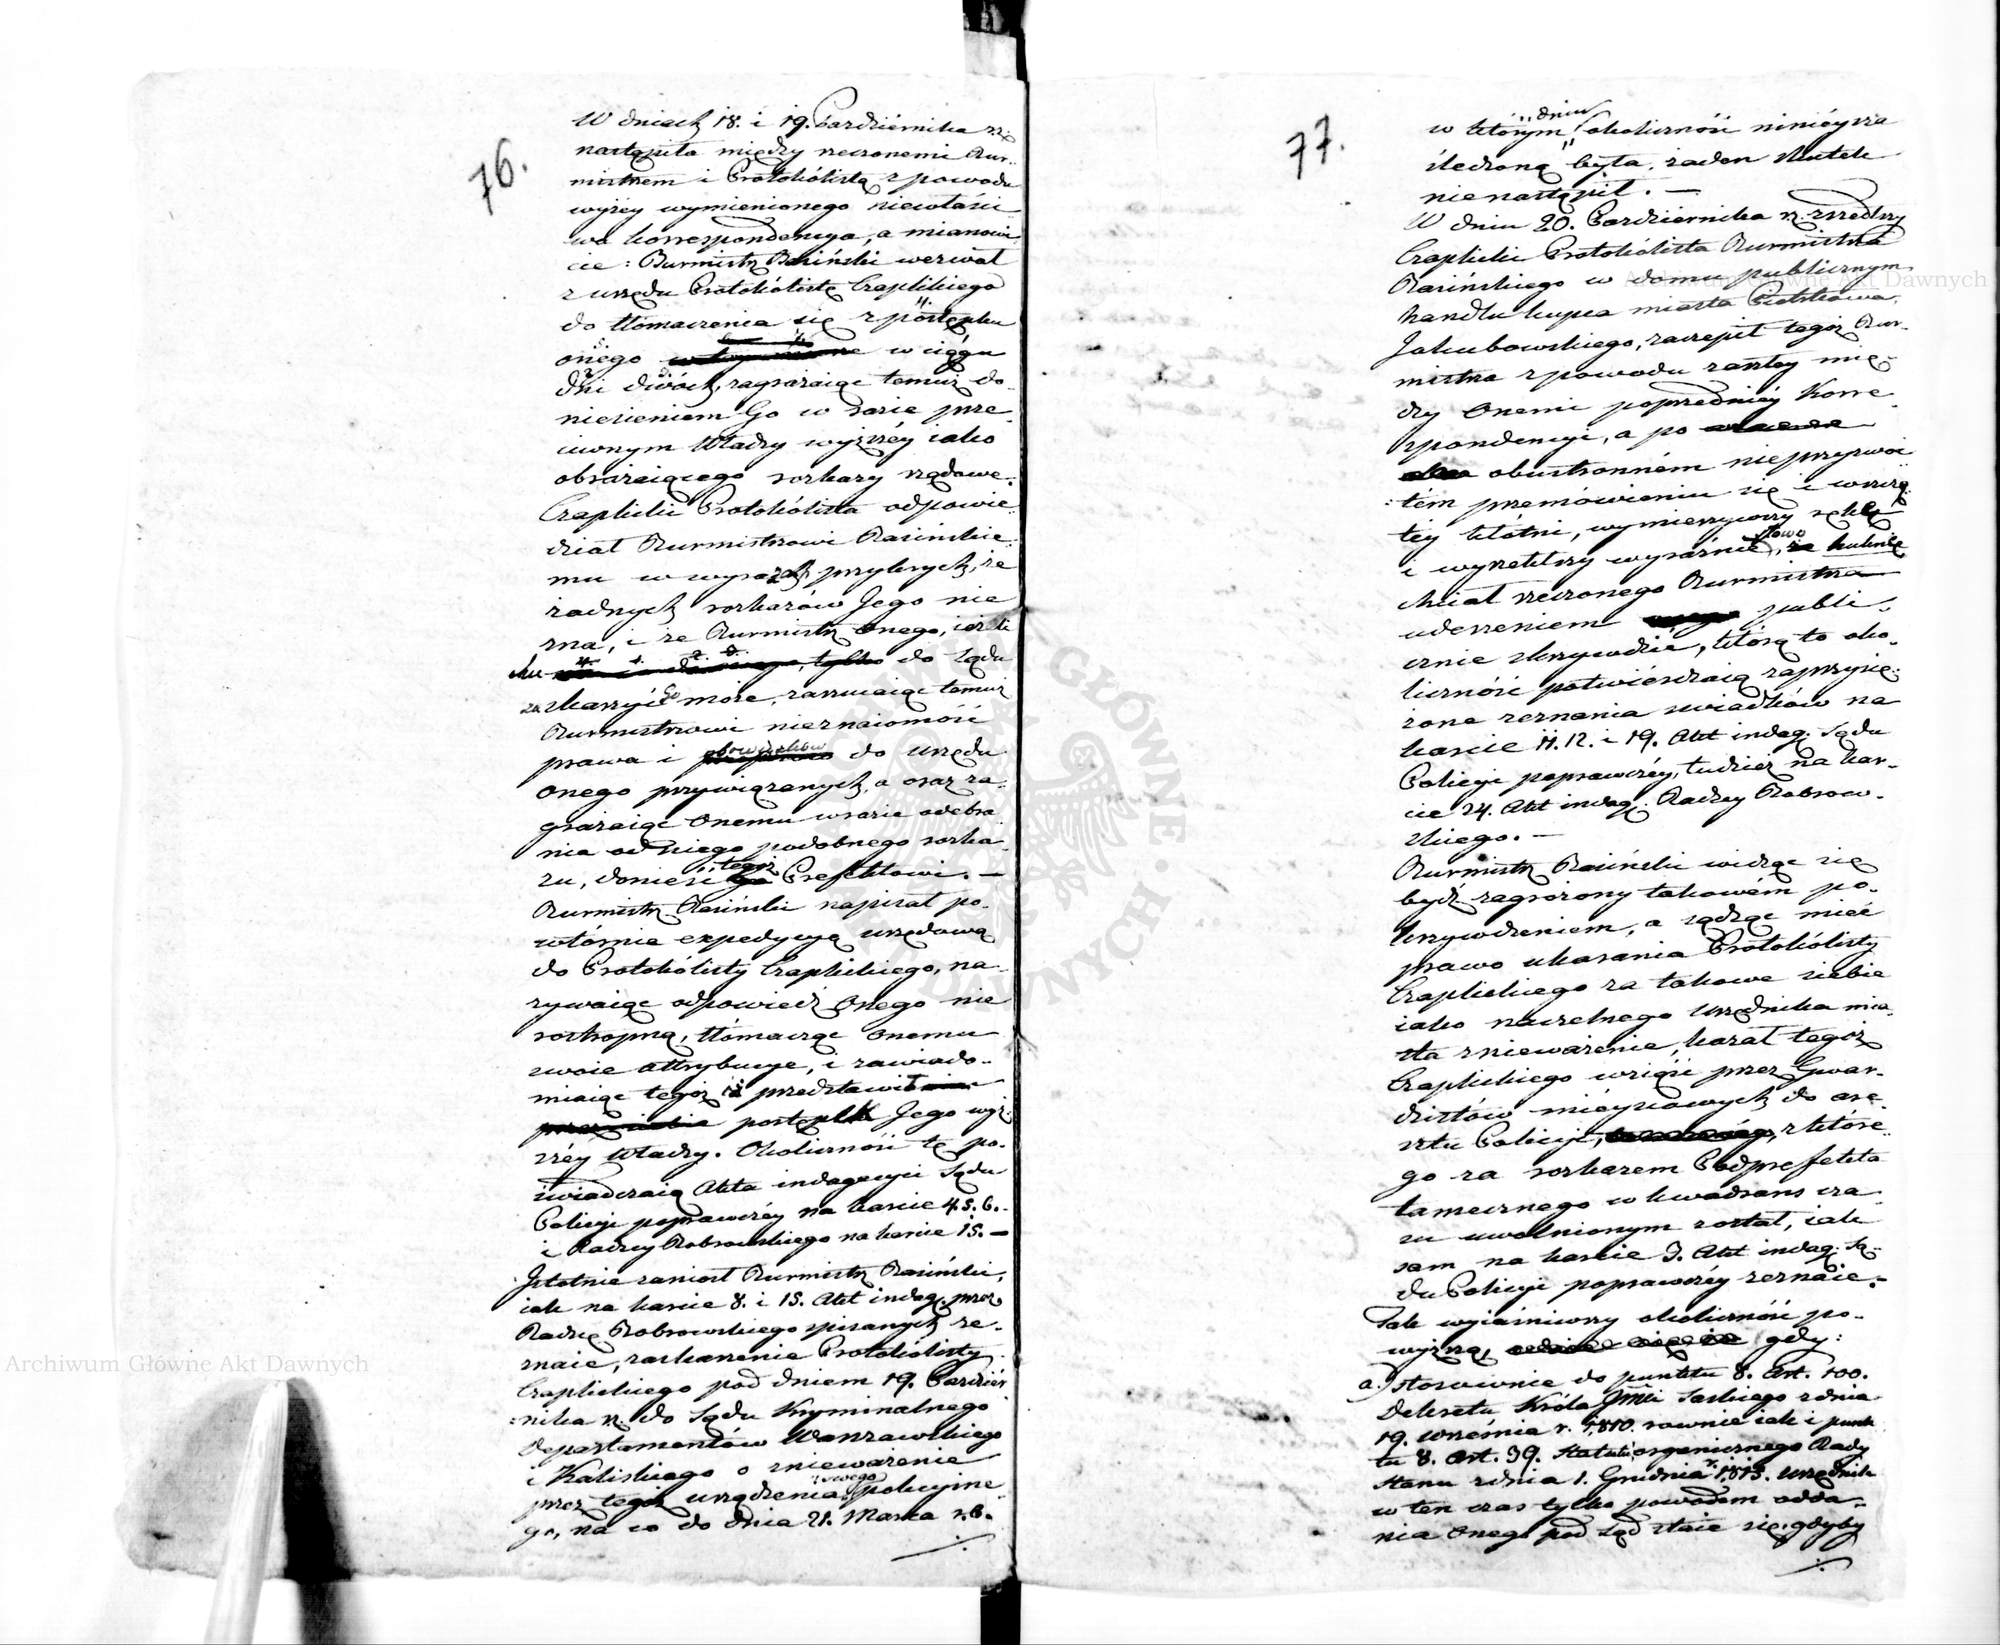 76.
W dniach 18. i 19. Pazdziernika rz:
nastąpiła między rzeczonemi Bur-
mistrzem i Protokólistą z powodu
wyżey wymienionego niewłaści
wa korrespondencya, a mianowi
cie: Burmistrz Rasiński wezwał
z urzędu Protokólistę Czaplickiego
do tłómaczenia się z postępku
onego w ciągu
dni dwóch, zagrażaiąc temuż do-
niesieniem Go w razie prze-
ciwnym Władzy wyższéy iako
obrażaiącego rozkazy rządowe.
Czaplicki Protokólista odpowie-
dział Burmistrzowi Rasińskie-
mu w wyrazach przykrych, że
żadnych rozkazów Jego nie
zna, i że Burmistrz onego, ieżeli
chce do Sądu
zaskarżyć Go może, zarzucaiąc temuż
Burmistrzowi nieznaiomość
prawa i obowiązków do urzędu
onego przywiązanych, a oraz za-
grażaiąc onemu w razie odebra-
nia od niego podobnego rozka-
zu, donieść tegoż Prefektowi. —
Burmistrz Rasiński napisał po-
wtórnie expedycyą urzędową
do Protokólisty Czaplickiego, na-
zywaiąc odpowiedź onego nie
roztropną, tłómacząc onemu
swoie attrybucye, i zawiado-
miaiąc tegoż iż przedstawił
postępek Jego wyż-
széy Władzy. Okoliczność tę po-
świadczaią Akta indagacyi Sądu
Policyi poprawczéy na karcie 4.5.6.
i Radzcy Bobrowskiego na karcie 15. —
Istotnie zaniosł Burmistrz Rasiński,
iak na karcie 8. i 15. Akt indag. przez
Radzcę Bobrowskiego spisanych ze-
znaie, zaskarzenie Protokólisty
Czaplickiego pod dniem 19. Paździer
nika rz. do Sądu Kryminalnego
Departamentów Warszawskiego
i Kaliskiego o znieważenie
przez tegoż urzędzenia swego policyine-
go, na co do dnia 21. Marca r.b.
77.
w którym dniu okoliczność ninieysza
śledzoną była, żaden skutek
nienastąpił. —
W dniu 20. Pazdziernika rz. zszedłszy
Czaplicki Protokólista Burmistrza
Rasińskiego w domu publicznym
handlu kupca miasta Piotrkowa
Jakubowskiego, zaczepił tegoż Bur-
mistrza z powodu zaszłey mię-
dzy onemi poprzedniéy Korre-
spondencyi, a po
obustronném nieprzyzwoi
tém przemówieniu się i wszczę-
téy kłótni, wymierzywszy rękę
i wyrzekłszy wyraźnie słowo
chciał rzeczonego Burmistrza
uderzeniem publi-
cznie skrzywdzić, którą to oko-
liczność potwiérdzaią zaprzysię-
żone zeznania swiadków na
karcie 11. 12. i 19. Akt indag. Sądu
Policyi poprawczéy, tudzież na kar-
cie 24. Akt indag. Radzcy Bobrow-
skiego. —
Burmistrz Rasiński widząc się
bydź zagrożony takowém po-
krzywdzeniem, a sądząc mieć
prawo ukarania Protokólisty
Czaplickiego za takowe siebie
iako naczelnego Urzędnika mia-
sta znieważenie, kazał tegoż
Czaplickiego wziąść przez Gwar-
dzistów mieyscowych do are-
sztu Policyi, z które-
go za rozkazem Podprefekta
tamecznego w kwadrans cza
su uwolnionym został, iak
sam na karcie 3. Akt indag. Są-
du Policyi poprawczéy zeznaie.
Tak wyiaśniwszy okoliczność po-
wyższą, gdy:
a.) stosownie do punktu 8. Art. 100.
Dekretu Króla Jmci Saskiego z dnia
19. Września r. 1810. rownie iak i punk
tu 8. Art. 39. Statutu organicznego Rady
Stanu z dnia 1. Grudnia r. 1813. Urzędnik
w ten czas tylko powodem odda-
nia onego pod sąd staie się, gdyby